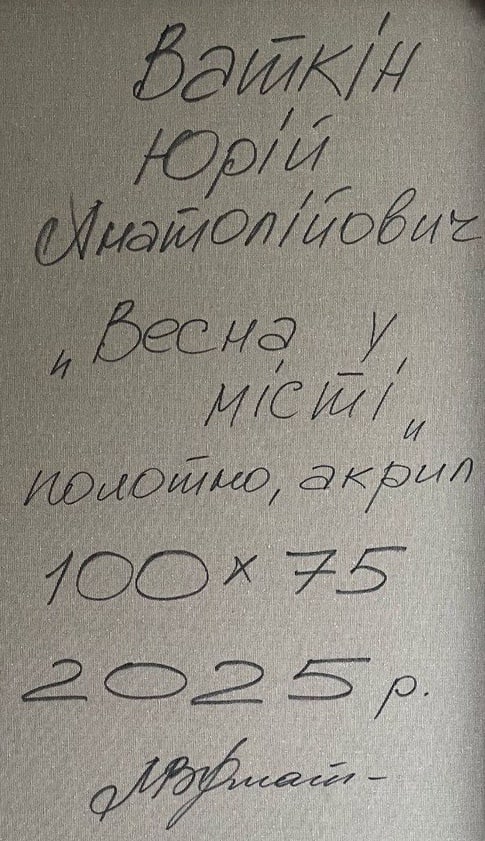 Ваткін
Юрій
Анатолійович
„Весна у
місті"
полотно, акрил
100 x 75
2025 р.